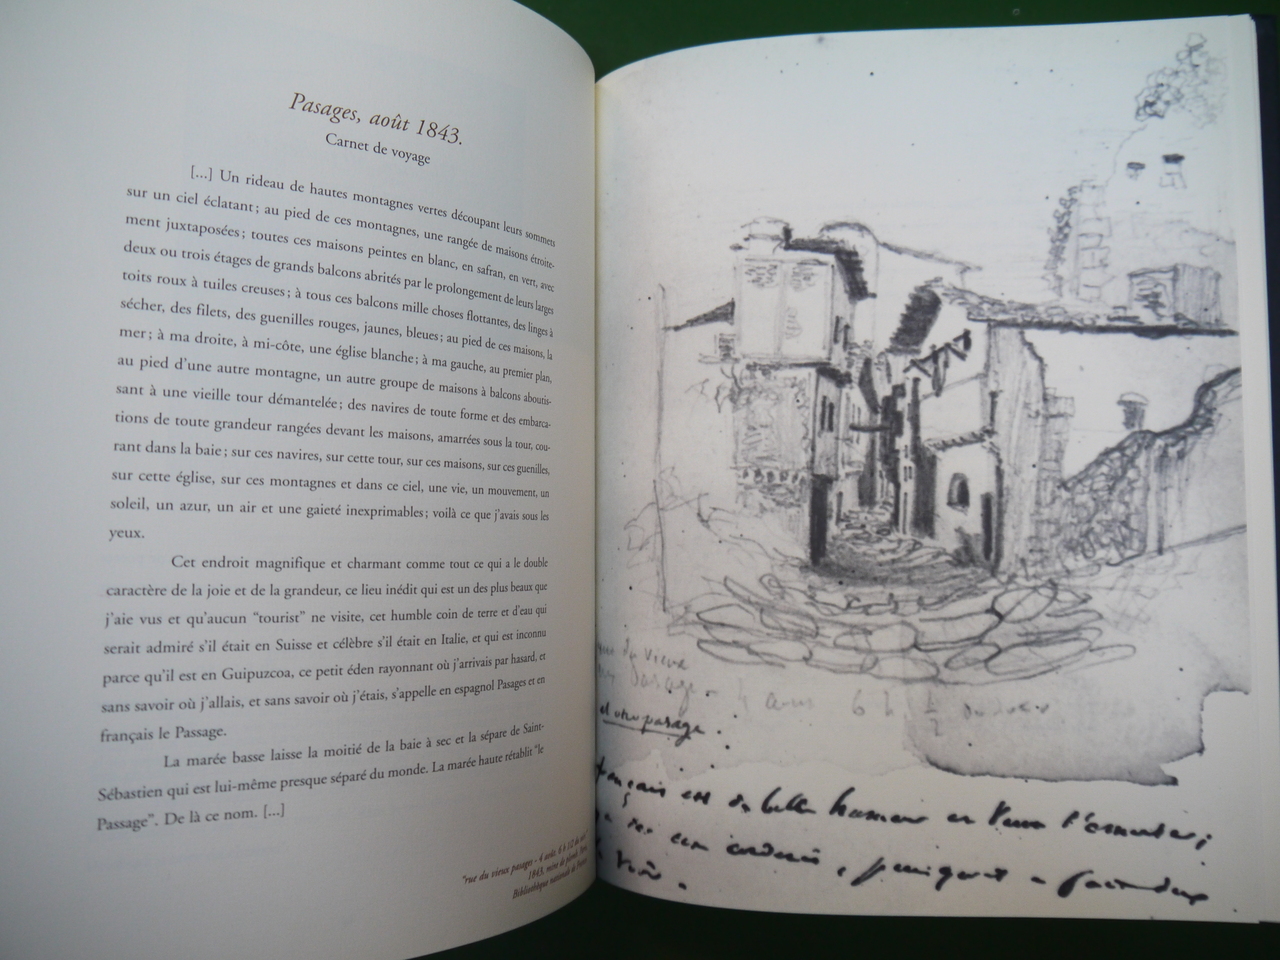 Pasages, août 1843.
Carnet de voyage
[...] Un rideau de hautes montagnes vertes découpant leurs sommets
sur un ciel éclatant ; au pied de ces montagnes, une rangée de maisons étroite-
ment juxtaposées ; toutes ces maisons peintes en blanc, en safran, en vert, avec
deux ou trois étages de grands balcons abrités par le prolongement de leurs larges
toits roux à tuiles creuses ; à tous ces balcons mille choses flottantes, des linges à
sécher, des filets, des guenilles rouges, jaunes, bleues ; au pied de ces maisons, la
mer ; à ma droite, à mi-côte, une église blanche ; à ma gauche, au premier plan,
au pied d'une autre montagne, un autre groupe de maisons à balcons aboutis-
sant à une vieille tour démantelée ; des navires de toute forme et des embarca-
tions de toute grandeur rangées devant les maisons, amarrées sous la tour, cou-
rant dans la baie ; sur ces navires, sur cette tour, sur ces maisons, sur ces guenilles,
sur cette église, sur ces montagnes et dans ce ciel, une vie, un mouvement, un
soleil, un azur, un air et une gaieté inexprimables ; voilà ce que j'avais sous les
yeux.
Cet endroit magnifique et charmant comme tout ce qui a le double
caractère de la joie et de la grandeur, ce lieu inédit qui est un des plus beaux que
j'aie vus et qu'aucun "tourist" ne visite, cet humble coin de terre et d'eau qui
serait admiré s'il était en Suisse et célèbre s'il était en Italie, et qui est inconnu
parce qu'il est en Guipuzcoa, ce petit éden rayonnant où j'arrivais par hasard, et
sans savoir où j'allais, et sans savoir où j'étais, s'appelle en espagnol Pasages et en
français le Passage.
La marée basse laisse la moitié de la baie à sec et la sépare de Saint-
Sébastien qui est lui-même presque séparé du monde. La marée haute rétablit "le
Passage". De là ce nom. [...]
"rue du vieux pasages - 4 août, 6 h 1/2 du soir"
1843, mine de plomb,
Bibliothèque nationale de France
du vieux
pasages - 4 août 6 h 1/2 du soir
français est de belle humeur en